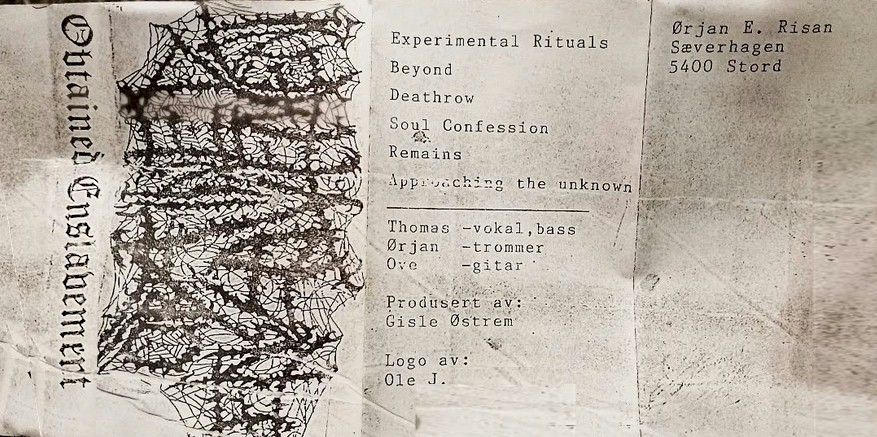 Obtained Enslavement
Experimental Rituals
Beyond
Deathrow
Soul Confession
Remains
Approaching the unknown
Thomas -vokal,bass
Ørjan -trommer
Ove -gitar
Produsert av:
Gisle Østrem
Logo av:
Ole J.
Ørjan E. Risan
Sæverhagen
5400 Stord